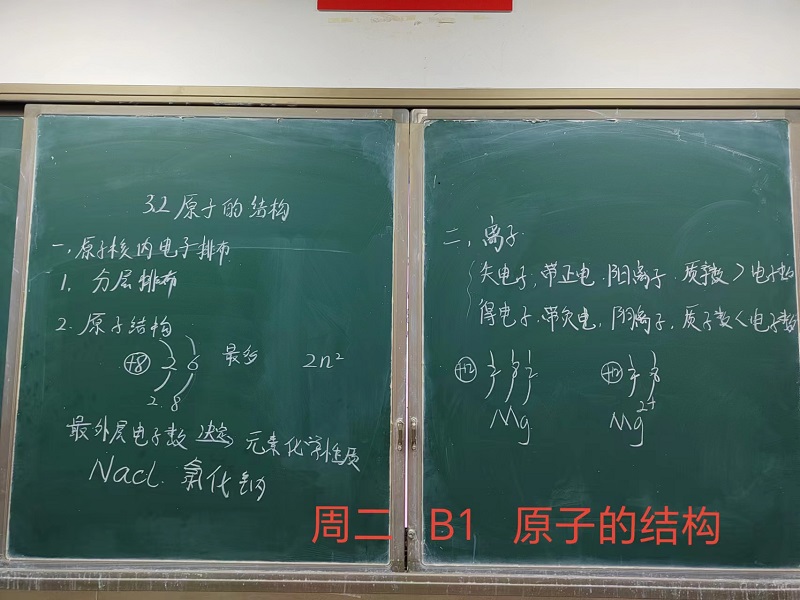 3.2 原子的结构
一、原子核内电子排布
1. 分层排布
2. 原子结构
+8 2 6 最多 2n²
2. 8
最外层电子数 决定 元素化学性质
Nacl. 氯化钠
二、离子
失电子,带正电,阳离子,质子数>电子数
得电子,带负电,阴离子,质子数<电子数
+12 2 8 2 +12 2 8
Mg Mg²⁺
周二 B1 原子的结构